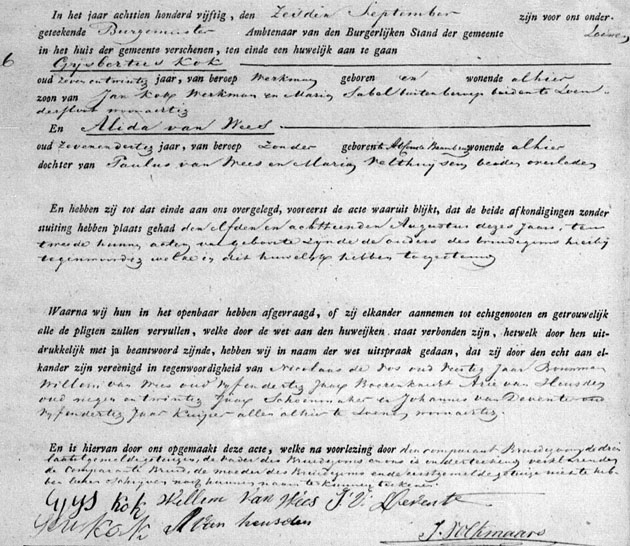 In het jaar achttien honderd vijftig, den September zijn voor ons onder-
geteekende Burgemeester Ambtenaar van den Burgerlijken Stand der gemeente Loenen
in het huis der gemeente verschenen, ten einde een huwelijk aan te gaan
6
Gysbertus Kok
oud zevenentwintig jaar, van beroep Werkman geboren en wonende alhier
zoon van Jan Kok Werkman en Maria Sabel buiten beroep beiden te Loen-
woonachtig
En Alida van Wees
oud Zevenendertig jaar, van beroep Zonder geboren te wonende alhier
dochter van Paulus van Wees en Maria Velthuysen beiden overleden
En hebben zij tot dat einde aan ons overgelegd, vooreerst de acte waaruit blijkt, dat de beide afkondigingen zonder
stuiting hebben plaats gehad den Elfden en achttienden Augustus dezes jaars, ten
tweede hunne acten van geboorte zynde de ouders des bruidegoms hierby
tegenwoordig welke in dit huwelyk hebben toegestemd
Waarna wij hun in het openbaar hebben afgevraagd, of zij elkander aannemen tot echtgenooten en getrouwelijk
alle de pligten zullen vervullen, welke door de wet aan den huwelijken staat verbonden zijn, hetwelk door hen uit-
drukkelijk met ja beantwoord zijnde, hebben wij in naam der wet uitspraak gedaan, dat zij door den echt aan el-
kander zijn vereënigd in tegenwoordigheid van Nicolaas de Vos oud Veertig Jaar Bouwman
Willem van Wees oud Vyfendertig Jaar Boerenknecht Arie van Heusden
oud negen en twintig Jaar Schoenmaker en Johannus van Deventer oud
Vyfendertig Jaar Kuiper allen alhier te Loenen woonachtig
En is hiervan door ons opgemaakt deze acte, welke na voorlezing door den comparant Bruidegom de drie
laatstgemelde getuigen, de Vader des Bruidegoms en ons is onderteekend verklarende
de Comparante Bruid, de moeder des Bruidegoms en de eerstgemelde getuige niet te heb-
ben leeren Schryven noch hunnen naam te kunnen teekenen
Gys kok Willem van Wees J V Devent
kok A van heusden
J. Volkmaars